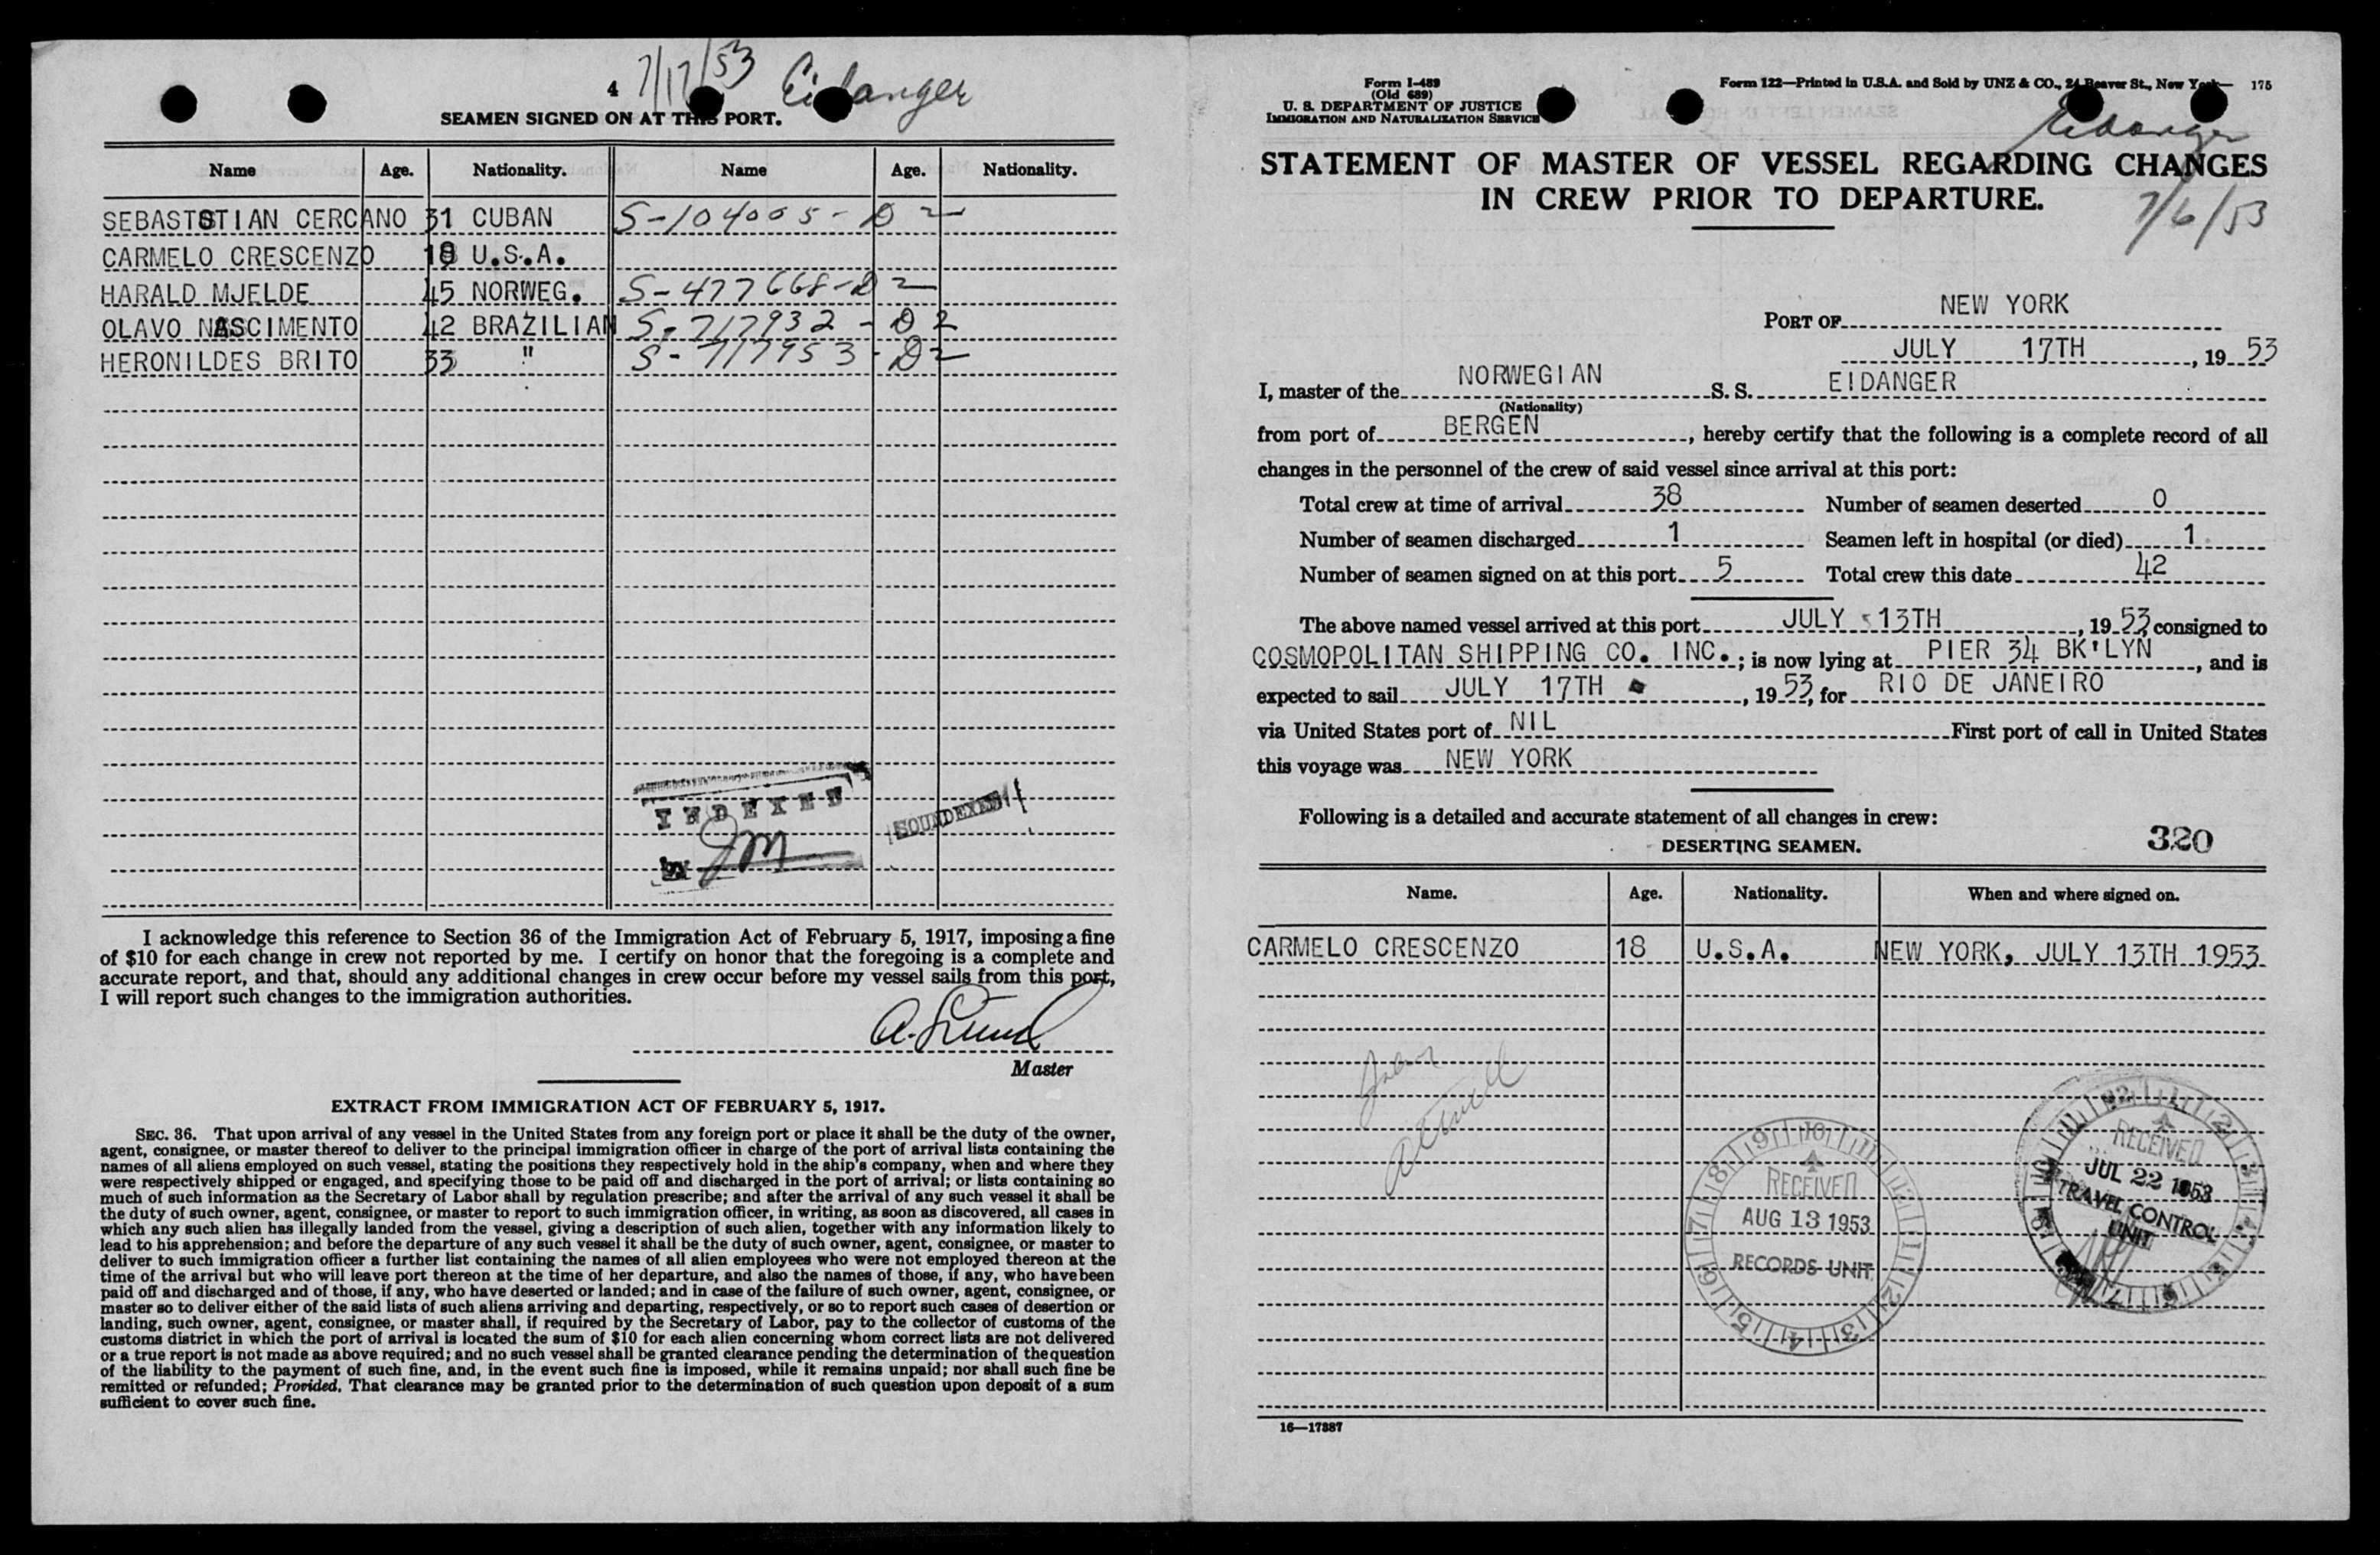 4 7/17/53 Eidanger
SEAMEN SIGNED ON AT THIS PORT.
Name Age. Nationality. Name Age. Nationality.
SEBASTSTIAN CERCANO 31 CUBAN S-104005-D2
CARMELO CRESCENZO 18 U.S.A.
HARALD MJELDE 45 NORWEG. S-477668-D2
OLAVO NASCIMENTO 42 BRAZILIAN S-717932-D2
HERONILDES BRITO 33 " S-717953-D2
INDEXED
by JM
SOUNDEXED
I acknowledge this reference to Section 36 of the Immigration Act of February 5, 1917, imposing a fine
of $10 for each change in crew not reported by me. I certify on honor that the foregoing is a complete and
accurate report, and that, should any additional changes in crew occur before my vessel sails from this port,
I will report such changes to the immigration authorities.
A. Lund
Master
EXTRACT FROM IMMIGRATION ACT OF FEBRUARY 5, 1917.
SEC. 36. That upon arrival of any vessel in the United States from any foreign port or place it shall be the duty of the owner,
agent, consignee, or master thereof to deliver to the principal immigration officer in charge of the port of arrival lists containing the
names of all aliens employed on such vessel, stating the positions they respectively hold in the ship's company, when and where they
were respectively shipped or engaged, and specifying those to be paid off and discharged in the port of arrival; or lists containing so
much of such information as the Secretary of Labor shall by regulation prescribe; and after the arrival of any such vessel it shall be
the duty of such owner, agent, consignee, or master to report to such immigration officer, in writing, as soon as discovered, all cases in
which any such alien has illegally landed from the vessel, giving a description of such alien, together with any information likely to
lead to his apprehension; and before the departure of any such vessel it shall be the duty of such owner, agent, consignee, or master to
deliver to such immigration officer a further list containing the names of all alien employees who were not employed thereon at the
time of the arrival but who will leave port thereon at the time of her departure, and also the names of those, if any, who have been
paid off and discharged and of those, if any, who have deserted or landed; and in case of the failure of such owner, agent, consignee, or
master so to deliver either of the said lists of such aliens arriving and departing, respectively, or so to report such cases of desertion or
landing, such owner, agent, consignee, or master shall, if required by the Secretary of Labor, pay to the collector of customs of the
customs district in which the port of arrival is located the sum of $10 for each alien concerning whom correct lists are not delivered
or a true report is not made as above required; and no such vessel shall be granted clearance pending the determination of the question
of the liability to the payment of such fine, and, in the event such fine is imposed, while it remains unpaid; nor shall such fine be
remitted or refunded; Provided, That clearance may be granted prior to the determination of such question upon deposit of a sum
sufficient to cover such fine.
Form I-489
(Old 689)
U. S. DEPARTMENT OF JUSTICE
IMMIGRATION AND NATURALIZATION SERVICE
Form 122—Printed in U.S.A. and Sold by UNZ & CO., 24 Beaver St., New York— 175
Eidanger
STATEMENT OF MASTER OF VESSEL REGARDING CHANGES
IN CREW PRIOR TO DEPARTURE.
7/6/53
PORT OF NEW YORK
JULY 17TH, 19 53
I, master of the NORWEGIAN S. S. EIDANGER
(Nationality)
from port of BERGEN, hereby certify that the following is a complete record of all
changes in the personnel of the crew of said vessel since arrival at this port:
Total crew at time of arrival 38 Number of seamen deserted 0
Number of seamen discharged 1 Seamen left in hospital (or died) 1
Number of seamen signed on at this port 5 Total crew this date 42
The above named vessel arrived at this port JULY 13TH, 19 53, consigned to
COSMOPOLITAN SHIPPING CO. INC.; is now lying at PIER 34 BK'LYN, and is
expected to sail JULY 17TH, 19 53, for RIO DE JANEIRO
via United States port of NIL First port of call in United States
this voyage was NEW YORK
Following is a detailed and accurate statement of all changes in crew:
DESERTING SEAMEN. 320
Name. Age. Nationality. When and where signed on.
CARMELO CRESCENZO 18 U.S.A. NEW YORK, JULY 13TH 1953
RECEIVED
AUG 13 1953
RECORDS UNIT
RECEIVED
JUL 22 1953
TRAVEL CONTROL
UNIT
16—17887